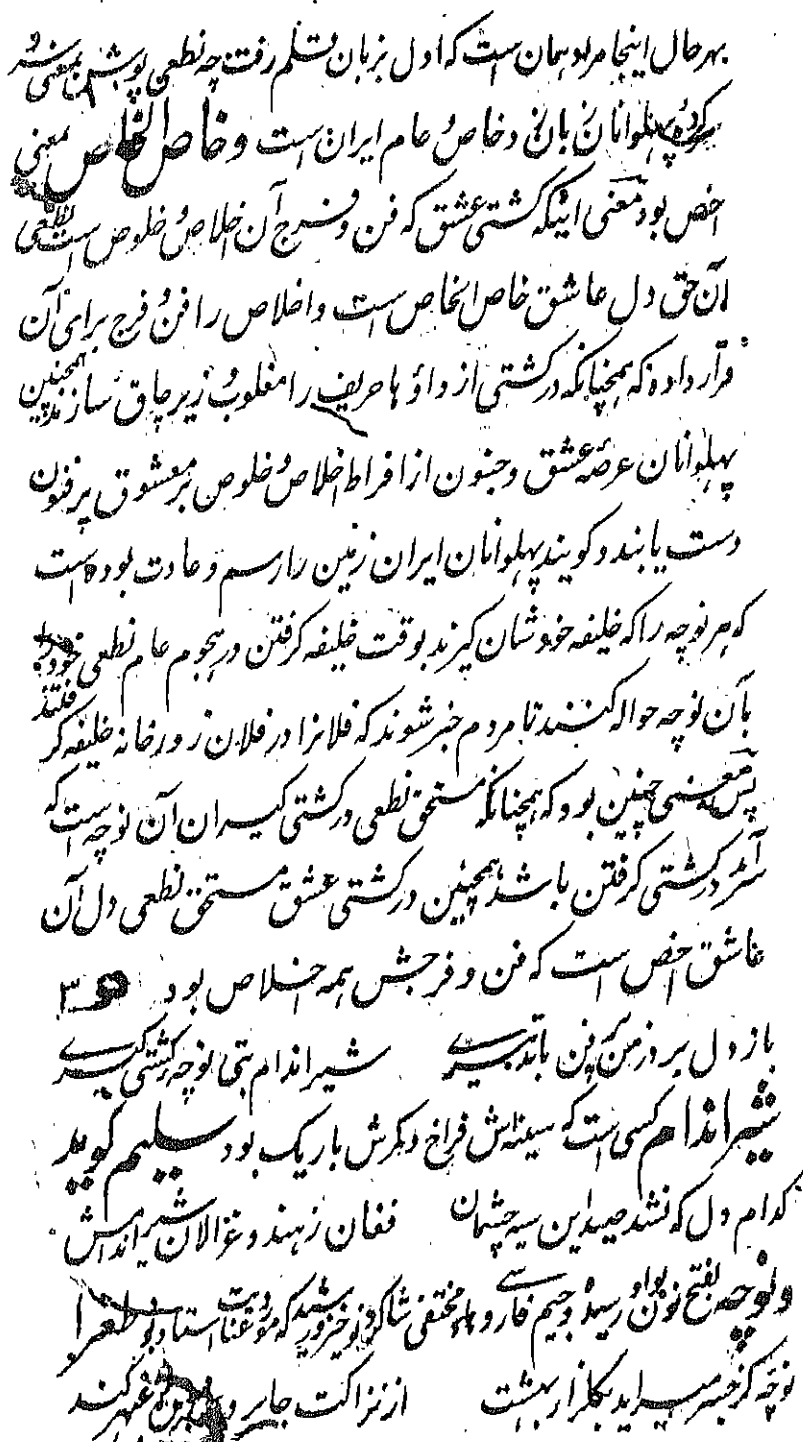 بهرحال اینجا مراد همان است که اول بزبان قلم رفت چه نطعی پوشش بمعنی
کرده پهلوانان بانی و خاص و عام ایران است و خاص الخاص بمعنی
اخص بود معنی اینکه کشتی عشق که فن و فرج آن اخلاص و خلوص است نطعی
آن حق دل عاشق خاص الخاص است و اخلاص را فن و فرج برای آن
قرار داده که همچنانکه در کشتی از داؤ ها حریف را مغلوب و زیر چاق سازند همچنین
پهلوانان عرصه عشق و جنون از افراط اخلاص و خلوص بر معشوق پرفنون
دست یابند و کویند پهلوانان ایران زمین را رسم و عادت بوده است
که هر نوچه را که خلیفه خودشان کیرند بوقت خلیفه کرفتن در هجوم عام نطعی خود
بآن نوچه حواله کنند تا مردم خبر شوند که فلانرا در فلان زورخانه خلیفه کرفتند
پس معنی چنین بود که همچنانکه مستحق نطعی در کشتی کیران آن نوچه است که
سرآمد در کشتی کرفتن باشد همچنین در کشتی عشق مستحق نطعی دل آن
عاشق اخص است که فن و فرجش همه اخلاص بود ۳
باز دل برد ز من پرفن باتدبیری شیر اندام بتی نوچه کشتی کیری
شیر اندام کسی است که سینه‌اش فراخ و کمرش باریک بود سلیم کوید
کدام دل که نشد صید این سیه چشمان فغان ز هند و غزالان شیر اندامش
و نوچه بفتح نون بواو رسیده و جیم فارسی و هاء مختفی شاکرد نوخیز ورزش که استاد بود طغرا
نوچه کز جسر میراید بکلزار بهشت از نزاکت جا بر